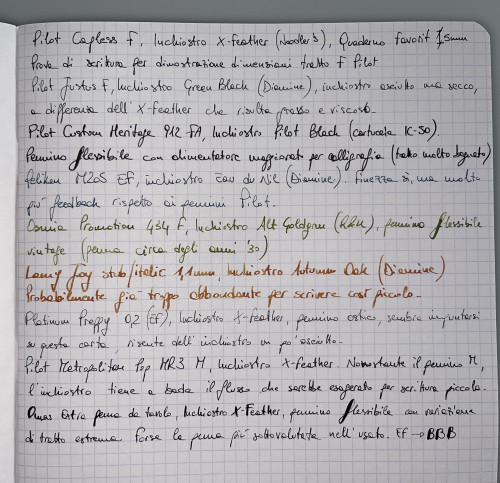 Pilot Capless F, Inchiostro X-feather (Noodler's), Quaderno favorit 5mm
Prova di scrittura per dimostrazione dimensioni tratto F Pilot
Pilot Justus F, Inchiostro Green Black (Diamine), inchiostro asciutto ma secco,
a differenza dell'X-feather che risulta grasso e viscoso.
Pilot Custom Heritage 912 FA, Inchiostro Pilot Black (cartuccia IC-50).
Pennino flessibile con alimentatore maggiorato per calligrafia (tratto molto bagnato)
Pelikan M205 EF, inchiostro Eau de Nil (Diamine). Finezza sì, ma molto
più feedback rispetto ai pennini Pilot.
Osmia Promotion 434 F, Inchiostro Alt Goldgrun (R&K), pennino flessibile
vintage (penna circa degli anni '30)
Lamy Joy stub/italic 1,1mm, inchiostro Autumn Oak (Diamine)
Probabilmente già troppo abbondante per scrivere così piccolo.
Platinum Preppy 0,2 (EF), Inchiostro X-feather, pennino ostico, sembra impuntarsi
su questa carta, risente dell'inchiostro un po' asciutto.
Pilot Metropolitan Pop MR3 M, Inchiostro X-feather. Nonostante il pennino M,
l'inchiostro tiene a bada il flusso che sarebbe esagerato per scrittura piccola.
Omas Extra penna da tavolo, Inchiostro X-Feather, pennino flessibile con variazione
di tratto estrema forse la penna più sottovalutata nell'usato. EF → BBB